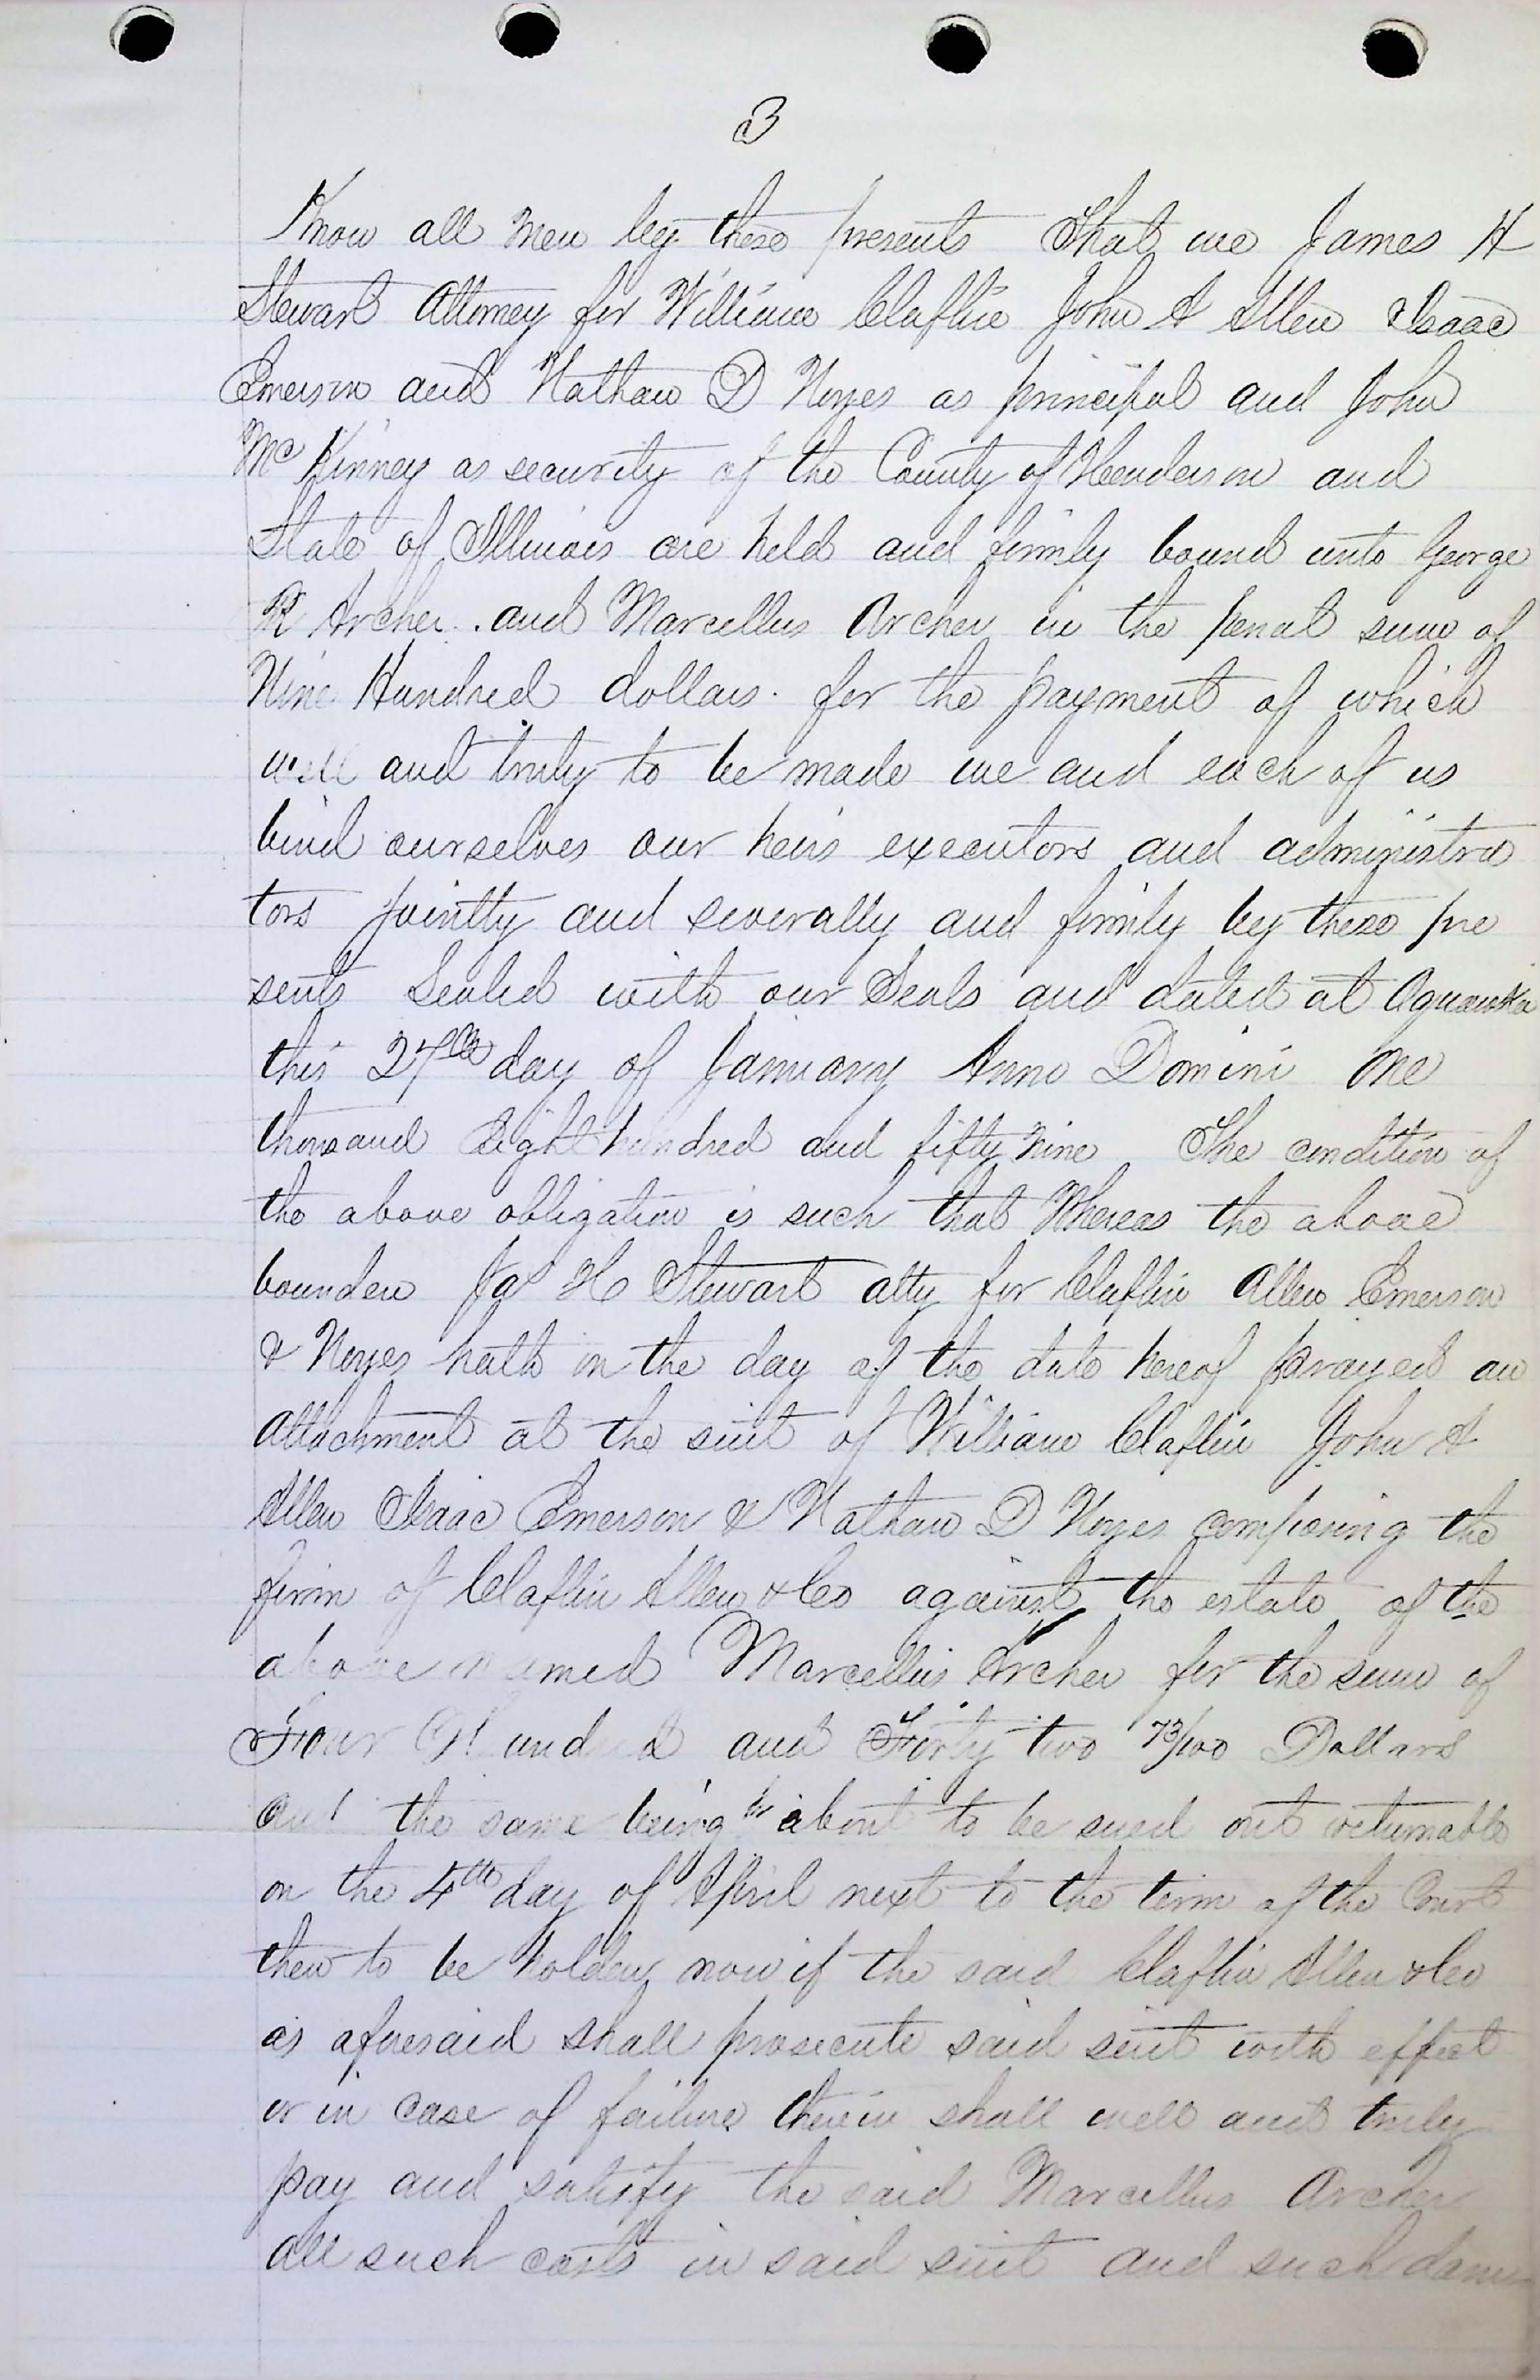 3
Know all men by these presents That we James H
Stewart Attorney for William Claflin John A Allen Isaac
Emerson and Nathan D Noyes as principal and John
McKinney as security of the County of Henderson and
State of Illinois are held and firmly bound unto George
R Archer . and Marcellus Archer in the penal sum of
Nine Hundred dollars . for the payment of which
well and truly to be made we and each of us
bind ourselves our heirs executors and administra
tors jointly and severally and firmly by these pre
sents Sealed with our Seals and dated at Oquawka
this 27th day of January Anno Domini One
thousand Eight hundred and fifty nine The condition of
the above obligation is such that Whereas the above
bounden Ja H Stewart atty for Claflin Allen Emerson
& Noyes hath on the day of the date hereof prayed an
attachment at the suit of William Claflin John A
Allen Isaac Emerson & Nathan D Noyes composing the
firm of Claflin Allen & Co against the estate of the
above named Marcellus Archer for the sum of
Four Hundred and Forty two 73/100 Dollars
and the same being about to be sued out returnable
on the 4th day of April next to the term of the Court
then to be holden now if the said Claflin Allen & Co
as aforesaid shall prosecute said suit with effect
or in case of failure therein shall well and truly
pay and satisfy the said Marcellus Archer
all such costs in said suit and such dam